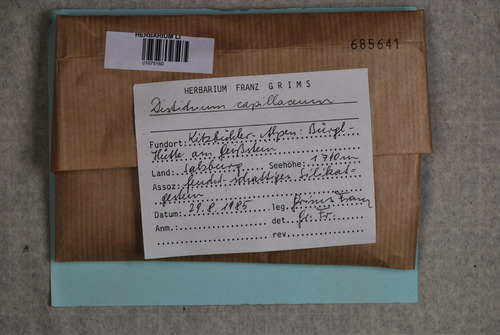 HERBARIUM LI
01670160
685641
HERBARIUM FRANZ GRIMS
Distichium capillaceum
Fundort: Kitzbühler-Alpen: Bürgl-
Hütte am Geißstein
Land: Salzburg Seehöhe: 1740m
Assoz: feucht-schattiges Silikat-
gestein
Datum: 29.8.1985 leg. Grims Franz
Anm.: det. Gr. Fr.
rev.